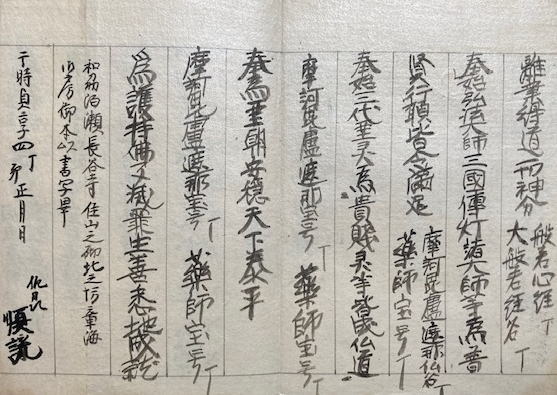 離業得道一切神分 般若心経丁
大般若経名丁
奉始弘法大師三國傳灯諸大師等為普
賢行願皆令満足 摩訶毘盧遮那仏名丁
薬師宝号丁
奉始三代聖灵為貴賤灵等皆成仏道
摩訶毘盧遮那宝号丁 薬師宝号丁
奉為聖朝安穏天下泰平
摩訶毘盧遮那宝号丁 薬師宝号丁
為護持佛子滅罪生善悉就
和刕泊瀬長谷寺住山之砌北之坊章海
御本以書写畢
于時貞享四丁卯正月日 順